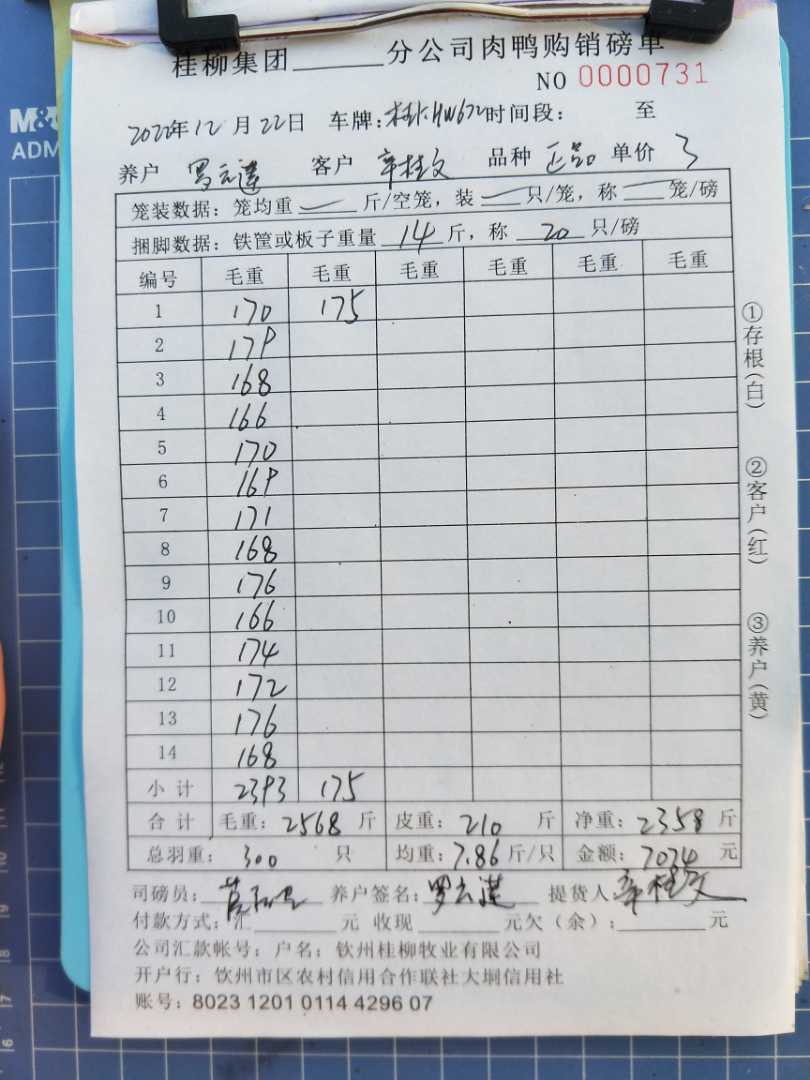 桂柳集团______分公司肉鸭购销磅单
NO 0000731
M&
ADM
2022年12月22日 车牌:桂KHW672时间段: 至
养户 罗云莲 客户 辛桂文 品种 正品 单价 3
笼装数据:笼均重 — 斤/空笼,装 — 只/笼,称 — 笼/磅
捆脚数据:铁筐或板子重量 14 斤,称 20 只/磅
编号 毛重 毛重 毛重 毛重 毛重 毛重
1 170 175
2 179
3 168
4 166
5 170
6 169
7 171
8 168
9 176
10 166
11 174
12 172
13 176
14 168
小计 2393 175
合计 毛重:2568 斤 皮重:210 斤 净重:2358 斤
总羽重:300 只 均重:7.86 斤/只 金额:7074 元
司磅员: 养户签名:罗云莲 提货人:辛桂文
付款方式:汇______元 收现______元欠(余):______元
公司汇款帐号:户名:钦州桂柳牧业有限公司
开户行:钦州市区农村信用合作联社大垌信用社
账号:8023 1201 0114 4296 07
①存根(白)
②客户(红)
③养户(黄)